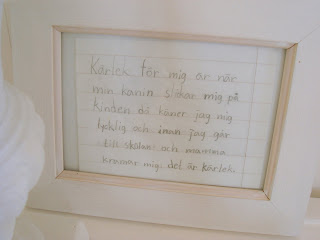 Kärlek för mig är när
min kanin slickar mig på
kinden då käner jag mig
lycklig och innan jag går
till skolan och mamma
kramar mig. det är kärlek.